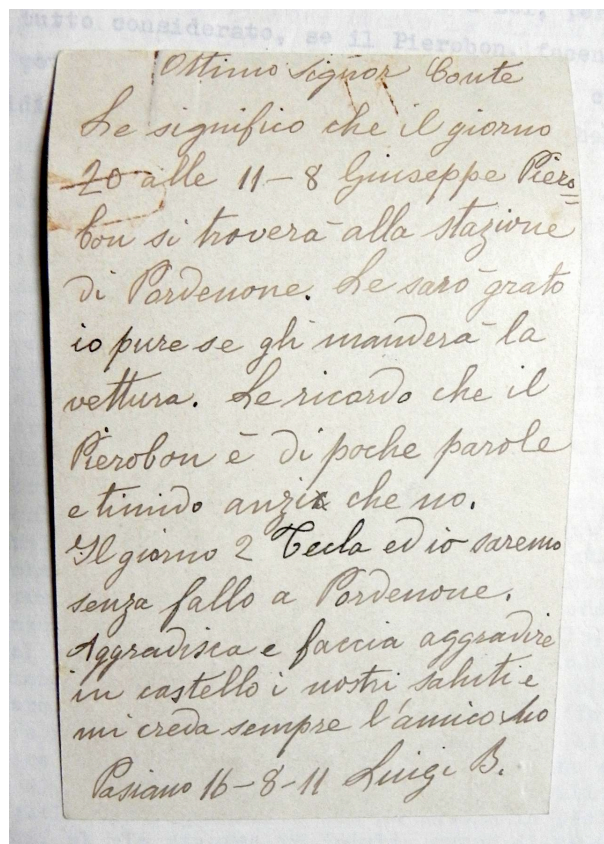 tutto considerato, se il Pierobon facen
Ottimo Signor Conte
Le significo che il giorno
20 alle 11-8 Giuseppe Piero=
bon si troverà alla stazione
di Pordenone. Le sarò grato
io pure se gli manderà la
vettura. Le ricordo che il
Pierobon è di poche parole
e timido anzi che no.
Il giorno 2 Tecla ed io saremo
senza fallo a Pordenone.
Aggradisca e faccia aggradire
in castello i nostri saluti e
mi creda sempre l'amico suo
Pasiano 16-8-11 Luigi B.